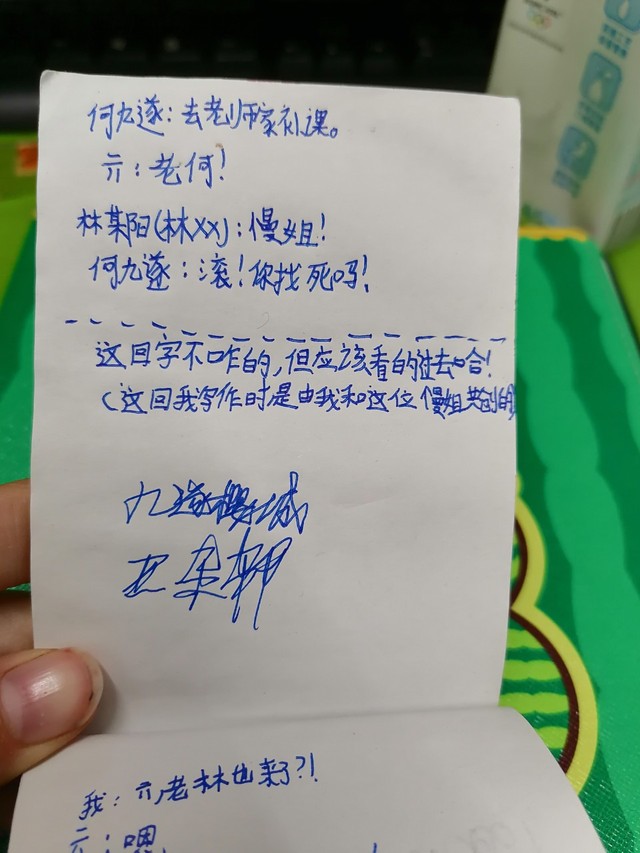 何九遂：去老师家补课。
亓：老何！
林某阳(林xx)：慢姐！
何九遂：滚！你找死吗！
这回字不咋的，但应该看的过去哈！
(这回我写作时是由我和这位慢姐共创的
九遂樱城
我：亓，老林也来了？！
亓：嘿